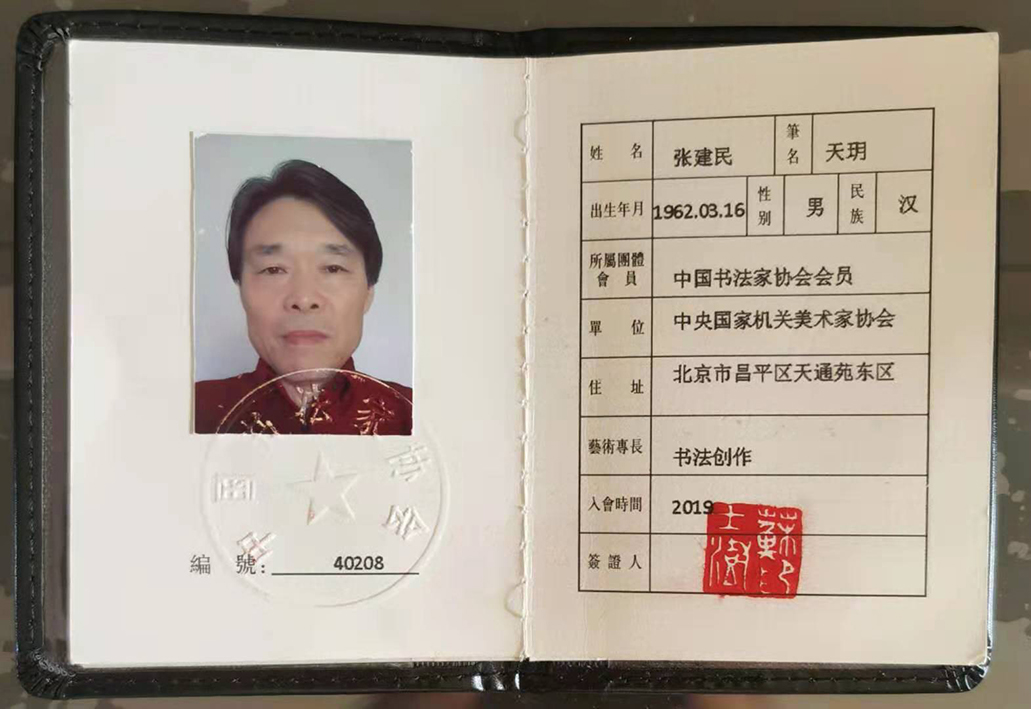 中国书法家协会
編 號：40208
姓 名 张建民 筆名 天玥
出生年月 1962.03.16 性别 男 民族 汉
所屬團體會員 中国书法家协会会员
單 位 中央国家机关美术家协会
住 址 北京市昌平区天通苑东区
藝術專長 书法创作
入會時間 2019
簽證人
蘇士澍印